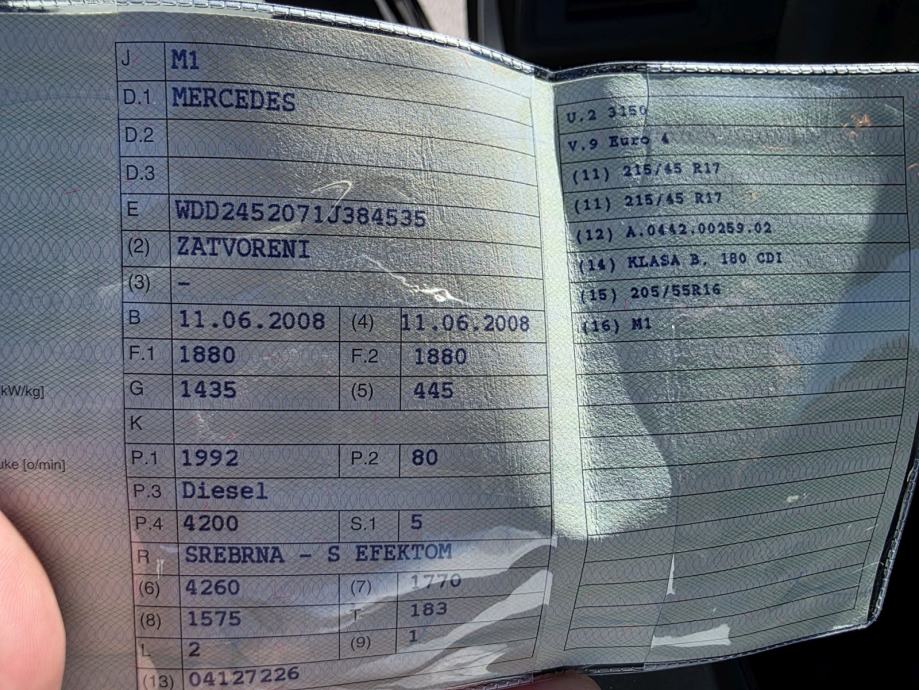 J M1
D.1 MERCEDES
D.2
D.3
E WDD2452071J384535
(2) ZATVORENI
(3) –
B 11.06.2008 (4) 11.06.2008
F.1 1880 F.2 1880
kW/kg] G 1435 (5) 445
K
P.1 1992 P.2 80
uke [o/min] P.3 Diesel
P.4 4200 S.1 5
R SREBRNA – S EFEKTOM
(6) 4260 (7) 1770
(8) 1575 T 183
L 2 (9) 1
(13) 04127226
U.2 3150
V.9 Euro 4
(11) 215/45 R17
(11) 215/45 R17
(12) A.0442.00259.02
(14) KLASA B, 180 CDI
(15) 205/55R16
(16) M1